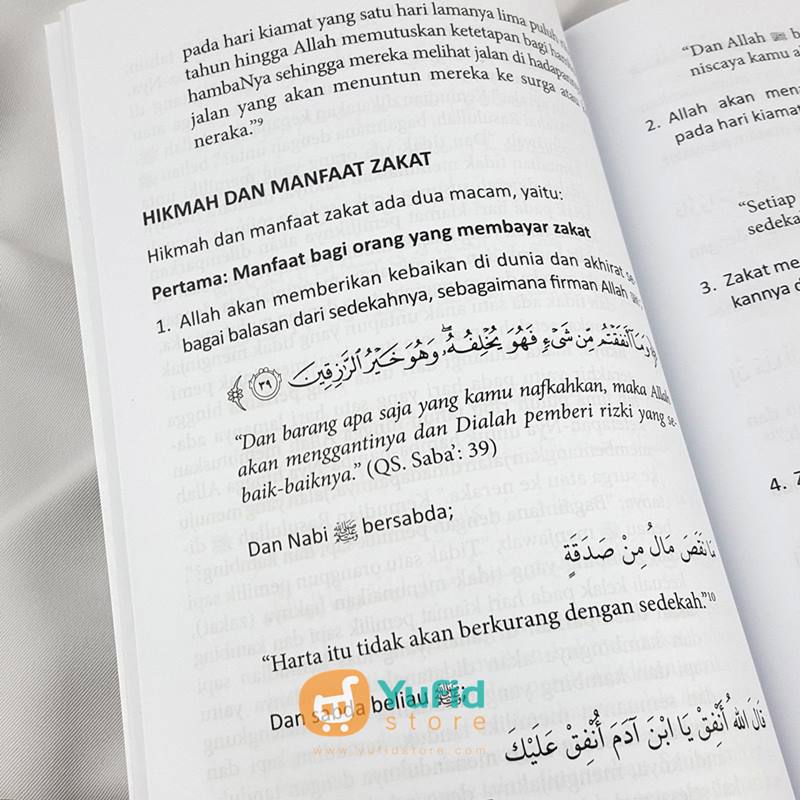 pada hari kiamat yang satu hari lamanya lima puluh
tahun hingga Allah memutuskan ketetapan bagi
hambaNya sehingga mereka melihat jalan di
jalan yang akan menuntun mereka ke surga atau
neraka."⁹
HIKMAH DAN MANFAAT ZAKAT
Hikmah dan manfaat zakat ada dua macam, yaitu:
Pertama: Manfaat bagi orang yang membayar zakat
1. Allah akan memberikan kebaikan di dunia dan akhirat se-
bagai balasan dari sedekahnya, sebagaimana firman Allah ﷻ:
أَنفَقْتُم مِّن شَيْءٍ فَهُوَ يُخْلِفُهُ ۖ وَهُوَ خَيْرُ الرَّازِقِينَ ٣٩
"Dan barang apa saja yang kamu nafkahkan, maka Allah
akan menggantinya dan Dialah pemberi rizki yang se-
baik-baiknya." (QS. Saba': 39)
Dan Nabi ﷺ bersabda;
مَا نَقَصَ مَالٌ مِنْ صَدَقَةٍ
"Harta itu tidak akan berkurang dengan sedekah."¹⁰
Dan sabda beliau ﷺ:
قَالَ اللهُ أَنْفِقْ يَا ابْنَ آدَمَ أُنْفِقْ عَلَيْكَ
"Dan Allah ﷻ
niscaya kamu
2. Allah akan
pada hari kiamat
"Setiap
3. Zakat
4.
Yufid
store
www.yufidstore.com